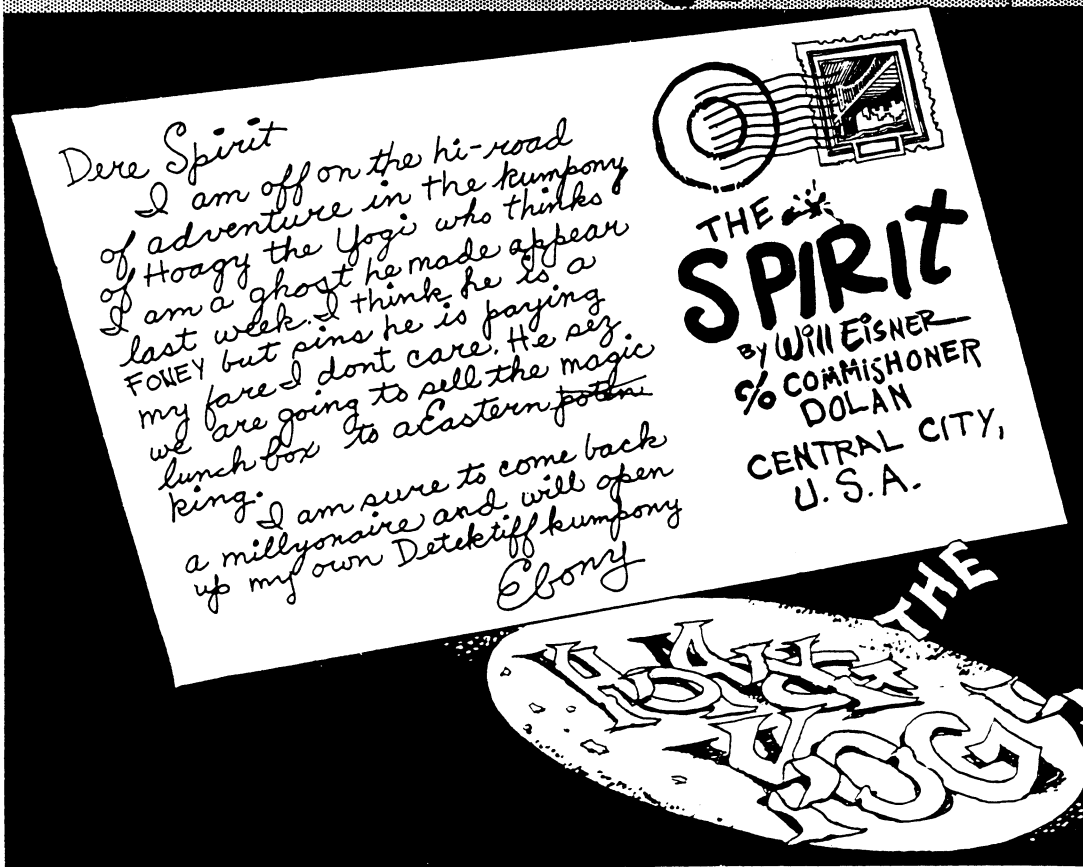 Dere Spirit
I am off on the hi-road
of adventure in the kumpony
of Hoagy the Yogi who thinks
I am a ghost he made appear
last week. I think he is a
FOWEY but sins he is paying
my fare I dont care. He sez
we are going to sell the magic
lunch box to a Eastern poten
king.
I am sure to come back
a millyonaire and will open
up my own Detektiff kumpony
Ebony
THE
SPIRIT
BY Will EiSNER
c/o COMMiSHONER
DOLAN
CENTRAL CITY,
U.S.A.
THE
YOGI